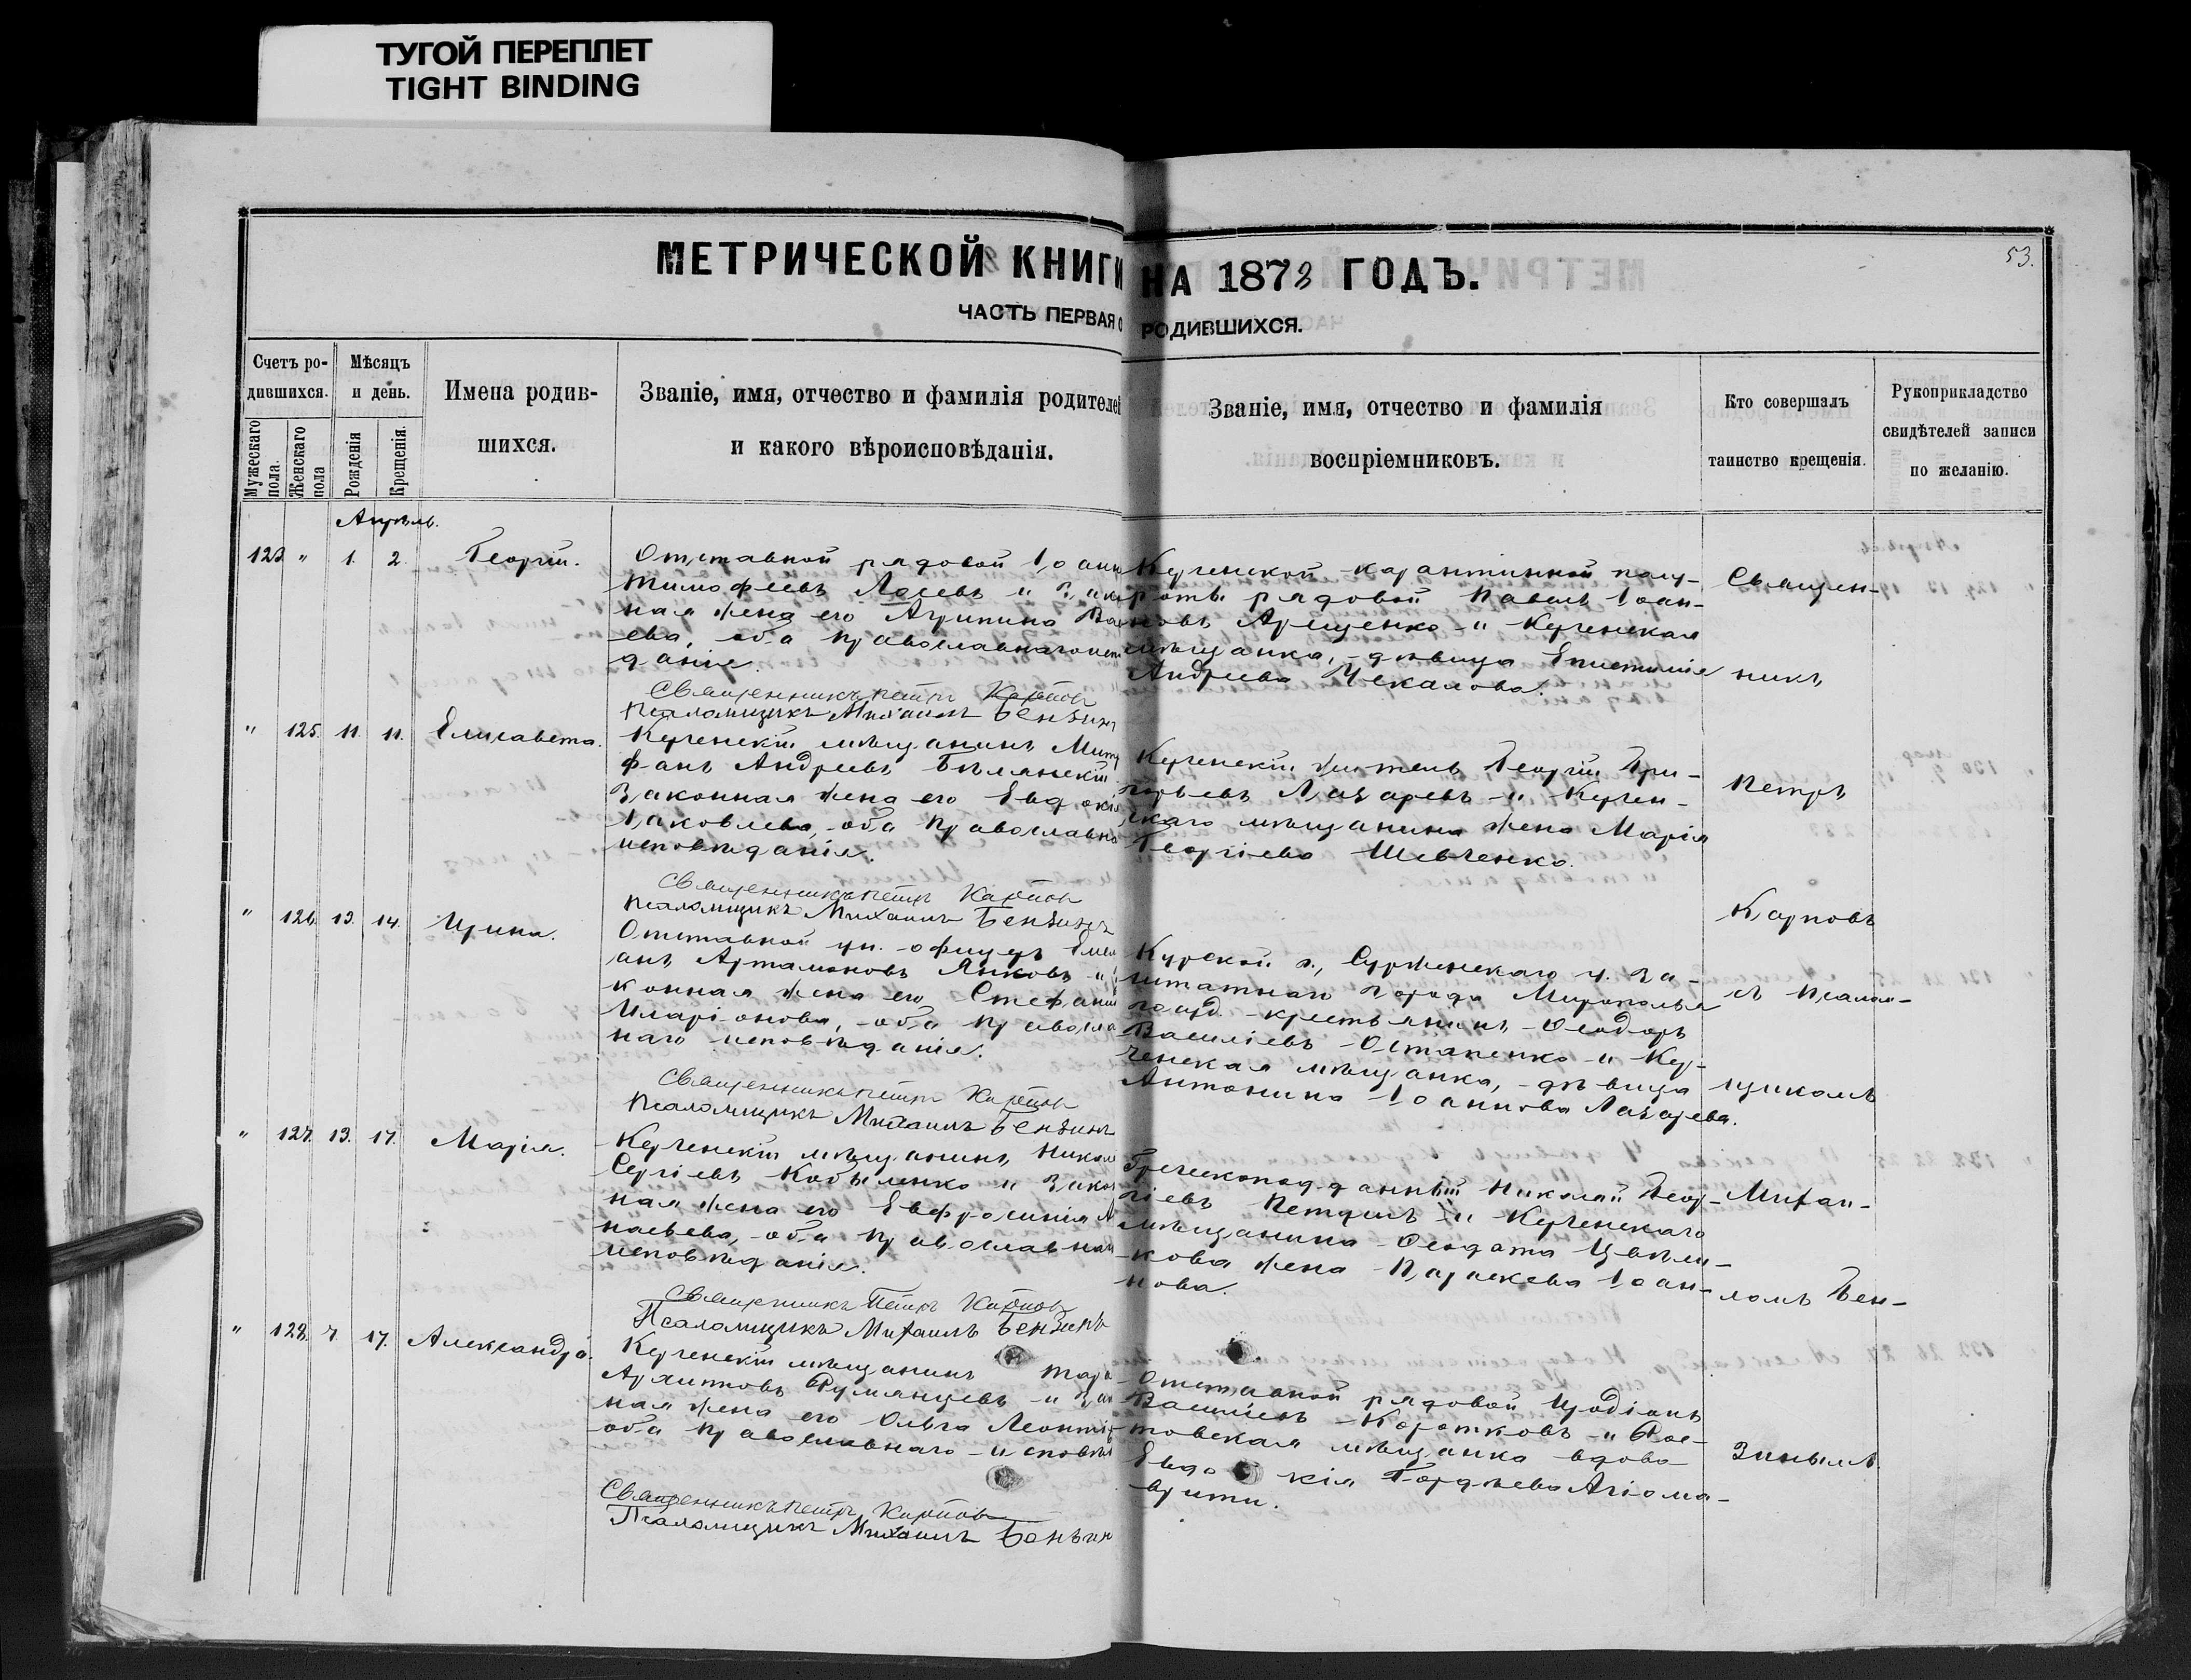 ТУГОЙ ПЕРЕПЛЕТ
TIGHT BINDING
МЕТРИЧЕСКОЙ КНИГИ НА 1873 ГОДЪ.
53.
ЧАСТЬ ПЕРВАЯ О РОДИВШИХСЯ.
Счетъ ро-
дившихся.
Мужескаго пола.
Женскаго пола
Мѣсяцъ
и день.
Рожденія
Крещенія.
Имена родив-
шихся.
Званіе, имя, отчество и фамилія родителей
и какого вѣроисповѣданія.
Званіе, имя, отчество и фамилія
воспріемниковъ.
Кто совершалъ
таинство крещенія.
Рукоприкладство
свидѣтелей записи
по желанію.
Апрѣль.
123 " 1. 2. Георгій.
Отставной рядовой Іоанн
Тимофеевъ Лосевъ и Зак
ная жена его Агрипина
ева, оба православнаго испо
данія.
Священникъ Петръ Карпов
Псаломщикъ Михаилъ Бензинъ
Керченской карантинной полу-
роты рядовой Павелъ Іоан-
новъ Арещенко и Керченская
мѣщанка, дѣвица Епистимія
Андреева Чекалова.
" 125. 11. 11. Елисавета.
Керченскій мѣщанинъ Митр
фанъ Андреевъ Бѣлянскій
Законная жена его Евдокія
Яковлева, оба Православна
исповѣданія.
Священникъ Петръ Карпов
Псаломщикъ Михаилъ Бензинъ
Керченскій житель Георгій Гри-
горьевъ Лазаревъ и Керчен-
скаго мѣщанина жена Марія
Георгіева Шевченко.
" 126. 13. 14. Ирина.
Отставной ун. офицеръ Емел
анъ Артамоновъ Янковъ и
конная жена его Стефани
Иларіонова, оба правосла
наго исповѣданія.
Священникъ Петръ Карпов
Псаломщикъ Михаилъ Бензинъ
Курской г., Суржанскаго у. за-
штатнаго города Мирополья
госуд. крестьянинъ Ѳеодоръ
Василіевъ Остапенко и Кер-
ченская мѣщанка, дѣвица
Антонина Іоаннова Лазарева.
" 127. 13. 17. Марія.
Керченскій мѣщанинъ Никол
Сергіевъ Кобыленко и Закон
ная жена его Евфросинія
наьева, оба Православнаг
исповѣданія.
Священникъ Петръ Карпов
Псаломщикъ Михаилъ Бензинъ
Греческоподданный Николай Геор-
гіевъ и Керченскаго
мѣщанина Ѳеодота Цвѣли-
кова жена Параскева Іоан-
нова.
" 128. 7. 17. Александра.
Керченскій мѣщанинъ Тара
Архиповъ Румянцевъ и Зак
ная жена его Ольга Леонтіе
оба Православнаго исповѣд
Священникъ Петръ Карпов
Псаломщикъ Михаилъ Бензин
Отставной рядовой Иродіонъ
Василіевъ Коротковъ и Рос-
товская мѣщанка вдова
Евдокія Гордѣева
Священ-
никъ
Петръ
Карповъ
съ Псалом-
щикомъ
Михаи-
ломъ Бен-
зинымъ.